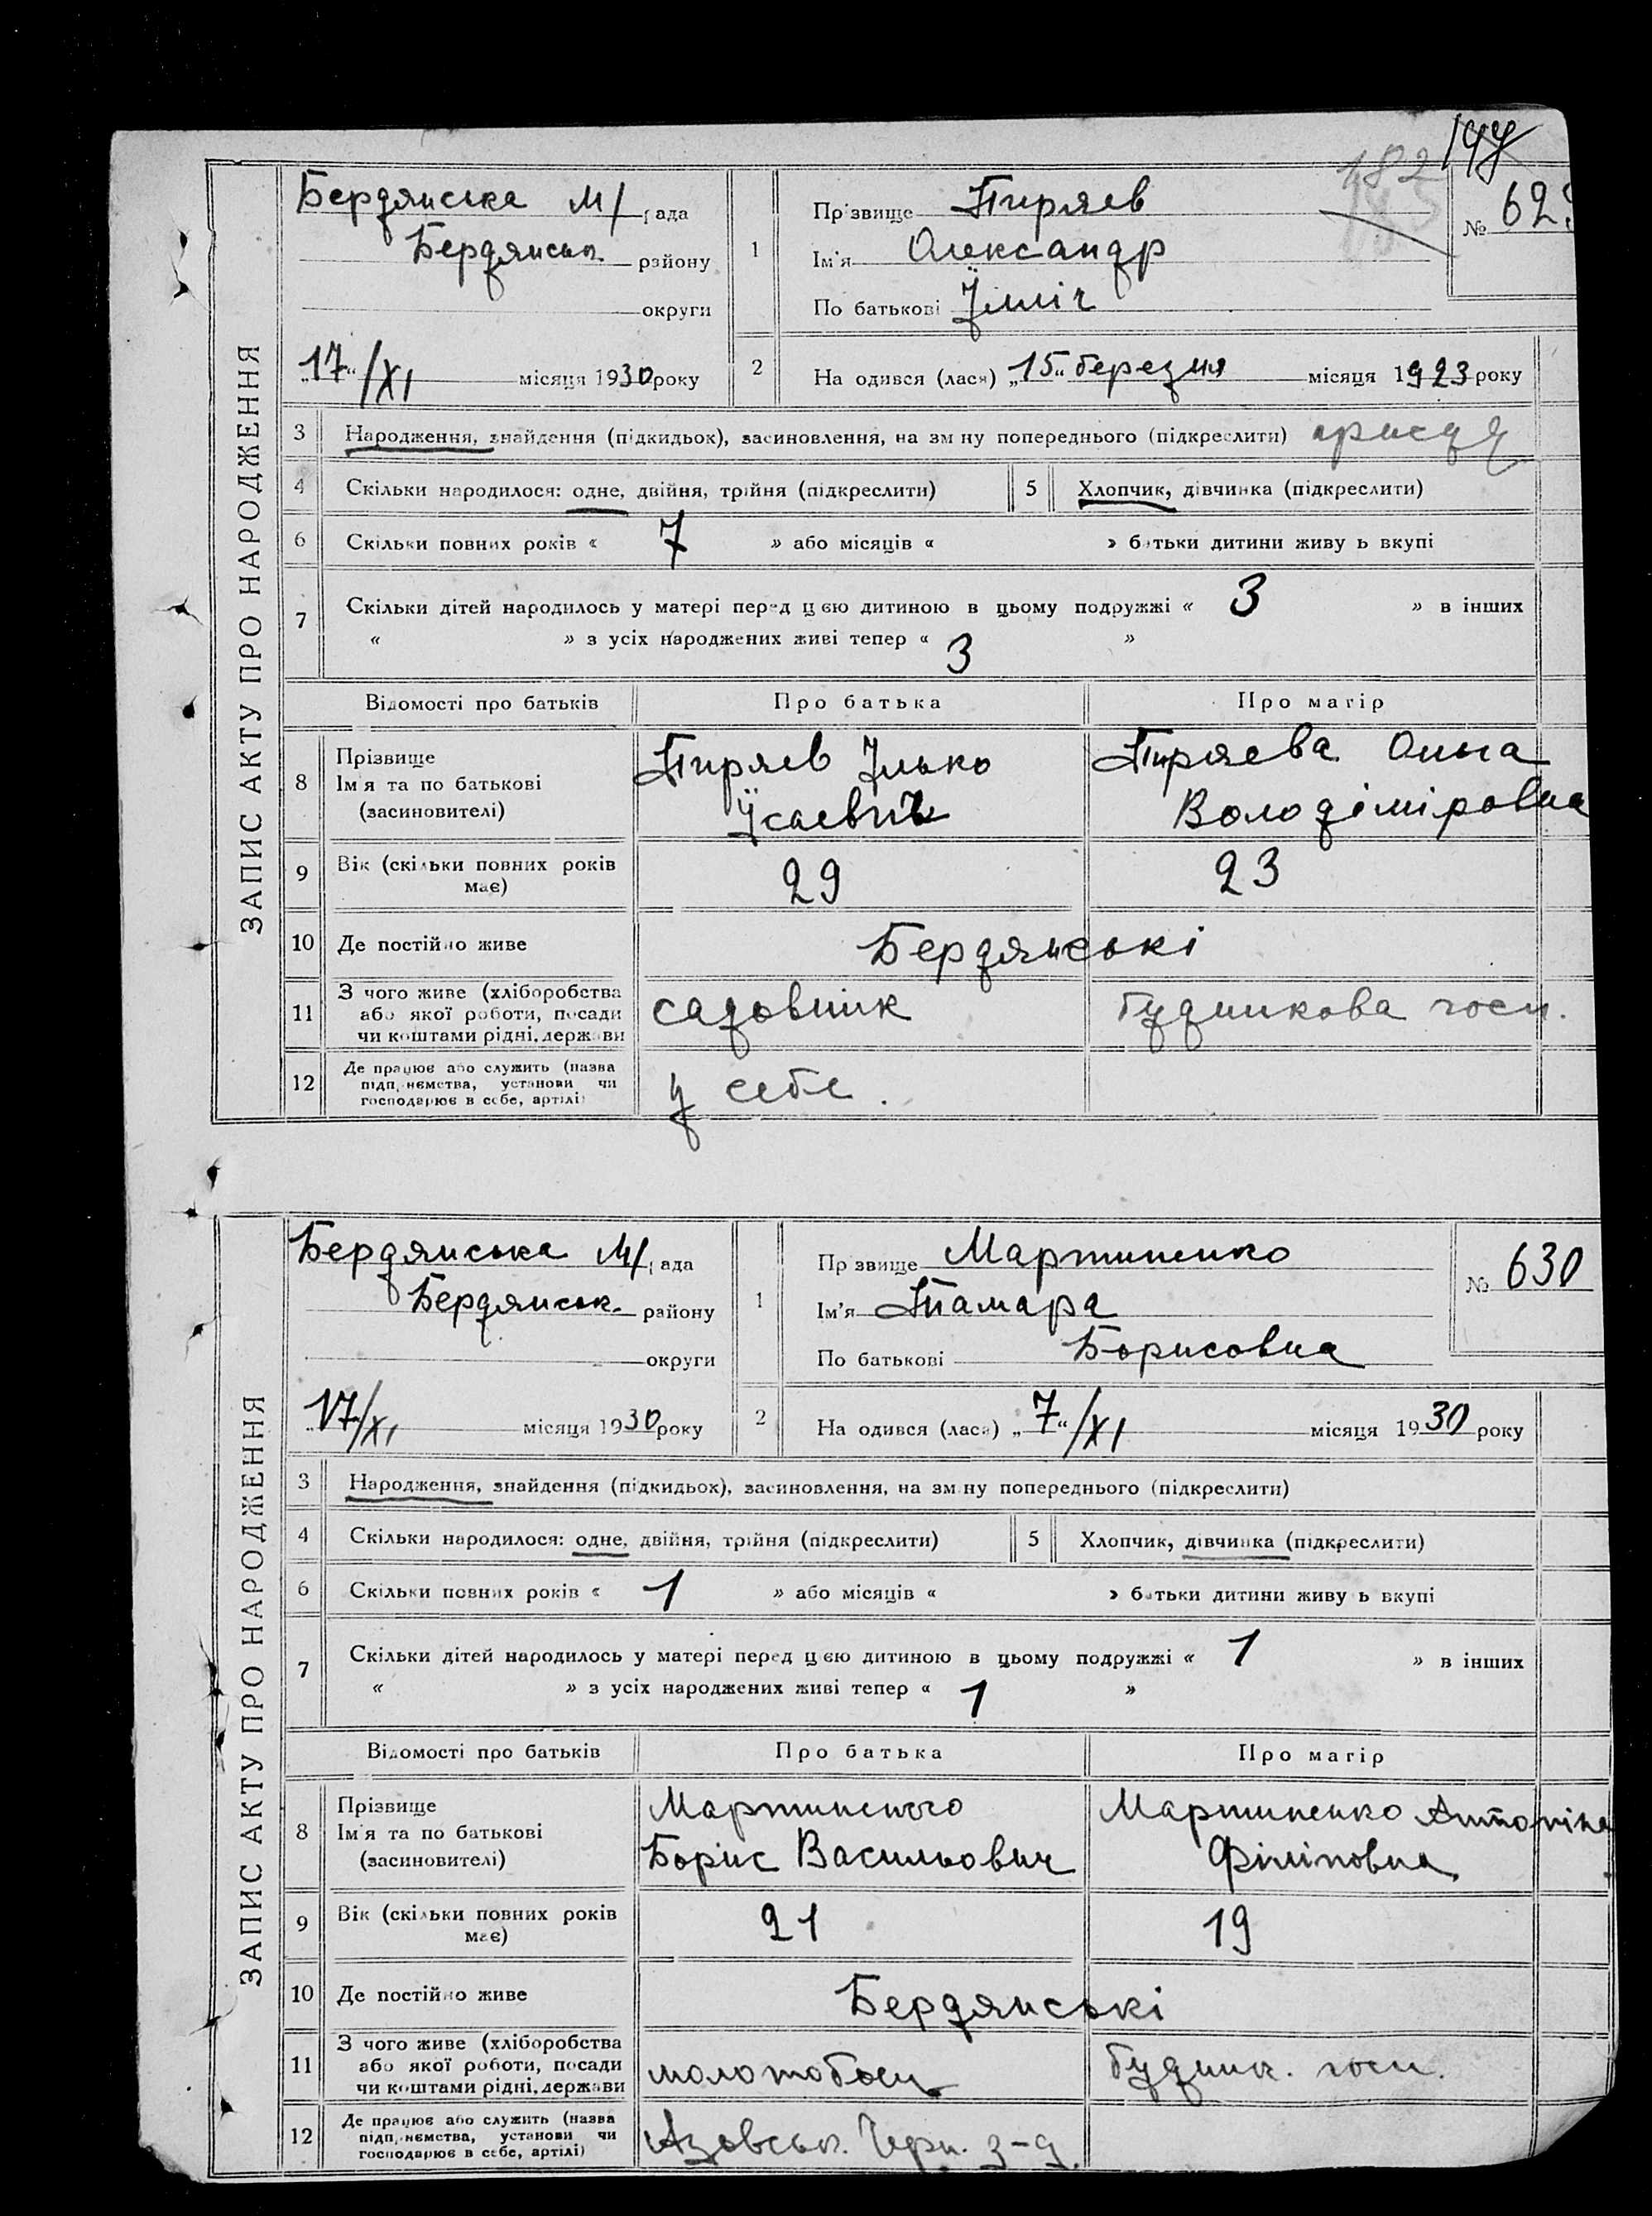 144
182
ЗАПИС АКТУ ПРО НАРОДЖЕННЯ
Бердянська М/рада
Бердянськ. району
округи
„17“/XI місяця 1930 року
1
Прізвище Пиряев
Ім'я Олександр
По батькові Їлліч
№ 629
2
На одився (лася) „15“ березня місяця 1923 року
3 Народження, знайдення (підкидьок), засиновлення, на зм ну попереднього (підкреслити)
4 Скільки народилося: одне, двійня, трійня (підкреслити)
5 Хлопчик, дівчинка (підкреслити)
6 Скільки повних років « 7 » або місяців « » батьки дитини живу ь вкупі
7 Скільки дітей народилось у матері перед цею дитиною в цьому подружжі « 3 » в інших
« » з усіх народжених живі тепер « 3 »
Відомості про батьків Про батька Про матір
8 Прізвище Ім'я та по батькові (засиновителі)
Пиряев Ілько Їсаевич
Пиряева Ольга Володіміровна
9 Вік (скільки повних років має) 29 23
10 Де постійно живе Бердянські
11 З чого живе (хліборобства або якої роботи, посади чи коштами рідні, держави
садовник
будинкова госп.
12 Де працює або служить (назва підп, немства, установи чи господарює в себе, артілі)
у себе.
ЗАПИС АКТУ ПРО НАРОДЖЕННЯ
Бердянська М/рада
Бердянськ. району
округи
„17/XI місяця 1930 року
1
Пр звище Мартиненко
Ім'я Тамара
По батькові Борисовна
№ 630
2
На одився (лася) „7“/XI місяця 1930 року
3 Народження, знайдення (підкидьох), засиновлення, на зм ну попереднього (підкреслити)
4 Скільки народилося: одне, двійня, трійня (підкреслити)
5 Хлопчик, дівчинка (підкреслити)
6 Скільки повних років « 1 » або місяців « » батьки дитини живу ь вкупі
7 Скільки дітей народилось у матері перед цею дитиною в цьому подружжі « 1 » в інших
« » з усіх народжених живі тепер « 1 »
Відомості про батьків Про батька Про матір
8 Прізвище Ім'я та по батькові (засиновителі)
Мартиненко Борис Васильович
Мартиненко Антоніна Філіповна
9 Вік (скільки повних років має) 21 19
10 Де постійно живе Бердянські
11 З чого живе (хліборобства або якої роботи, посади чи коштами рідні, держави
молотобоец
будинк. госп.
12 Де працює або служить (назва підп, немства, установи чи господарює в себе, артілі)
Азовськ. Чорн. з-д.